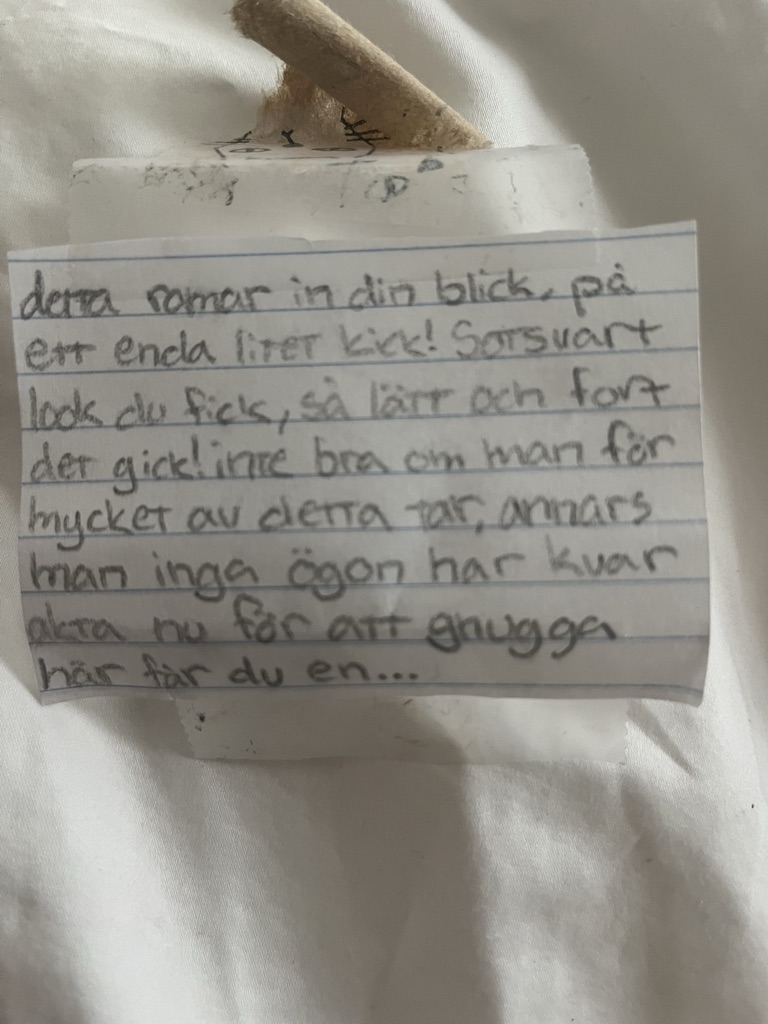 detta ramar in din blick, på
ett enda litet kick! Sotsvart
look du fick, så lätt och fort
det gick! inte bra om man för
mycket av detta tar, annars
man inga ögon har kvar
akta nu för att gnugga
här får du en...